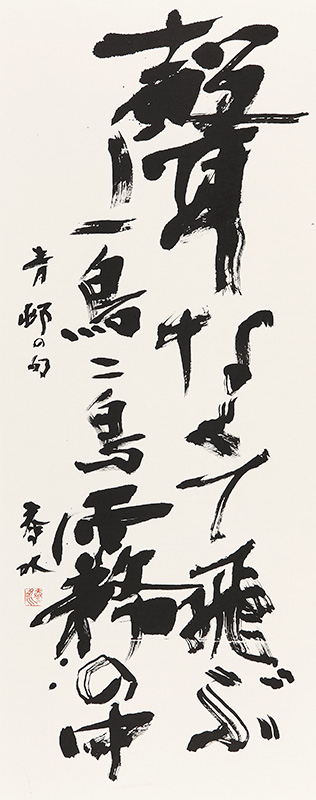 聲なくて飛ぶ
一鳥二鳥霧の中
青邨の句
春水